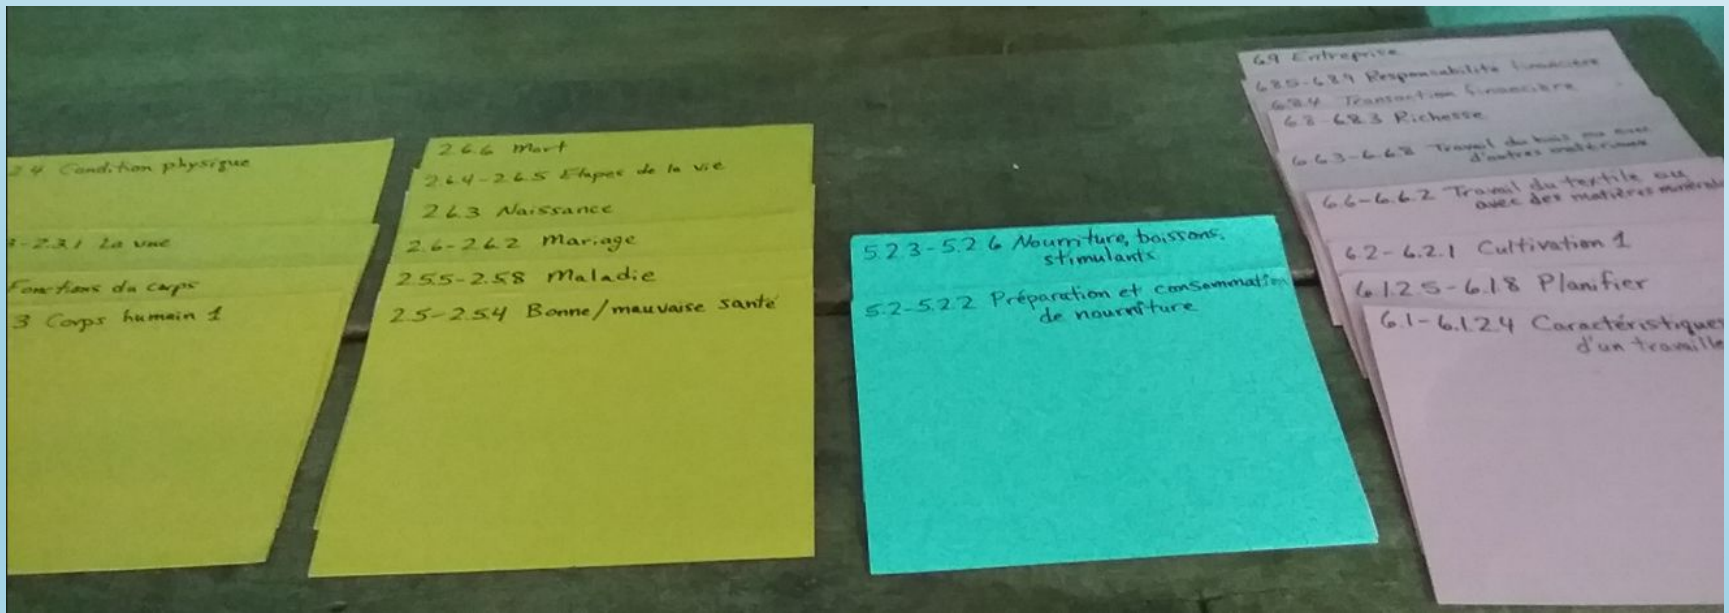 2.4 Condition physique
-2.3.1 La vue
Fonctions du corps
3 Corps humain 1
2.6.6 Mort
2.6.4-2.6.5 Etapes de la vie
2.6.3 Naissance
2.6-2.6.2 Mariage
2.5.5-2.5.8 Maladie
2.5-2.5.4 Bonne/mauvaise santé
5.2.3-5.2.6 Nourriture, boissons,
stimulants
5.2-5.2.2 Préparation et consommation
de nourriture
6.9 Entreprise
6.8.5-6.8.9 Responsabilité financière
6.8.4 Transaction financière
6.8-6.8.3 Richesse
6.6.3-6.6.8 Travail du bois ou avec
d'autres matériaux
6.6-6.6.2 Travail du textile ou
avec des matières minérale
6.2-6.2.1 Cultivation 1
6.1.2.5-6.1.8 Planifier
6.1-6.1.2.4 Caractéristiques
d'un travaille